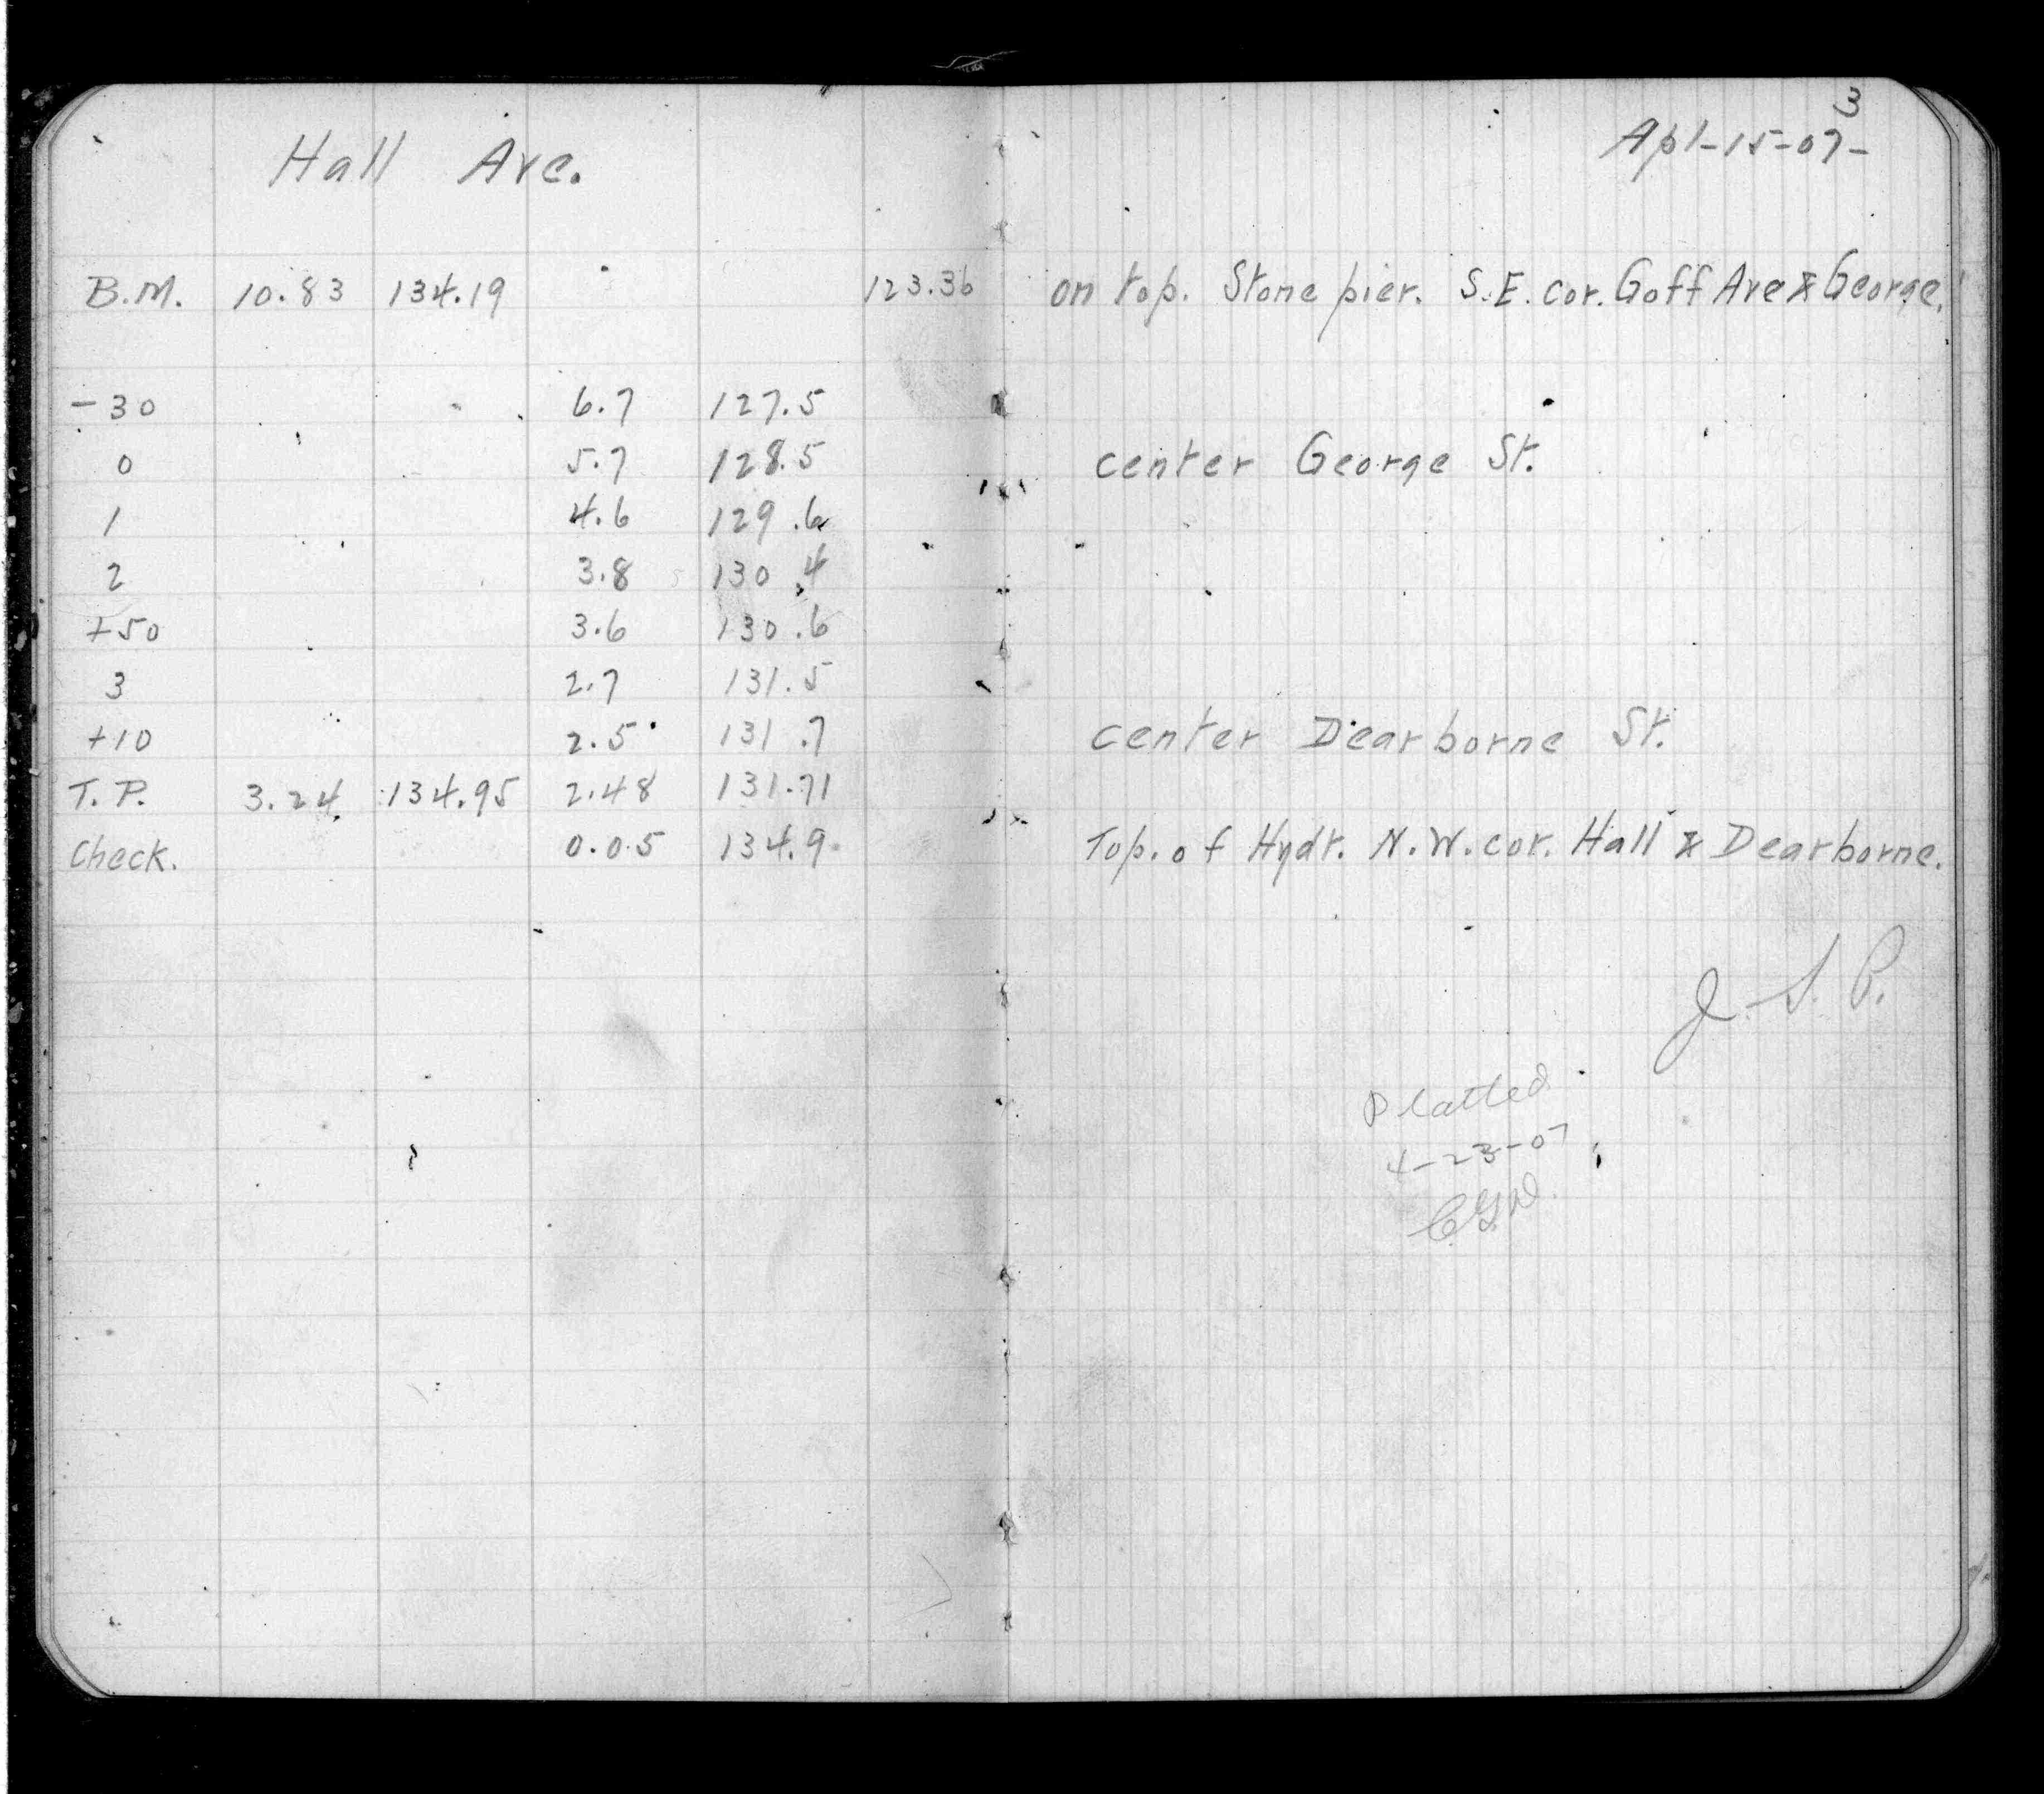 3
Hall Ave.
Apl-15-07-
B.M. 10.83 134.19 123.36 on top. Stone pier. S.E. cor. Goff Ave & George.
-30 6.7 127.5
0 5.7 128.5 center George St.
1 4.6 129.6
2 3.8 130.4
+50 3.6 130.6
3 2.7 131.5
+10 2.5 131.7 center Dearborne St.
T.P. 3.24 134.95 2.48 131.71
Check. 0.05 134.9 Top. of Hydr. N.W. cor. Hall & Dearborne.
J.S.P.
Platted
4-23-07